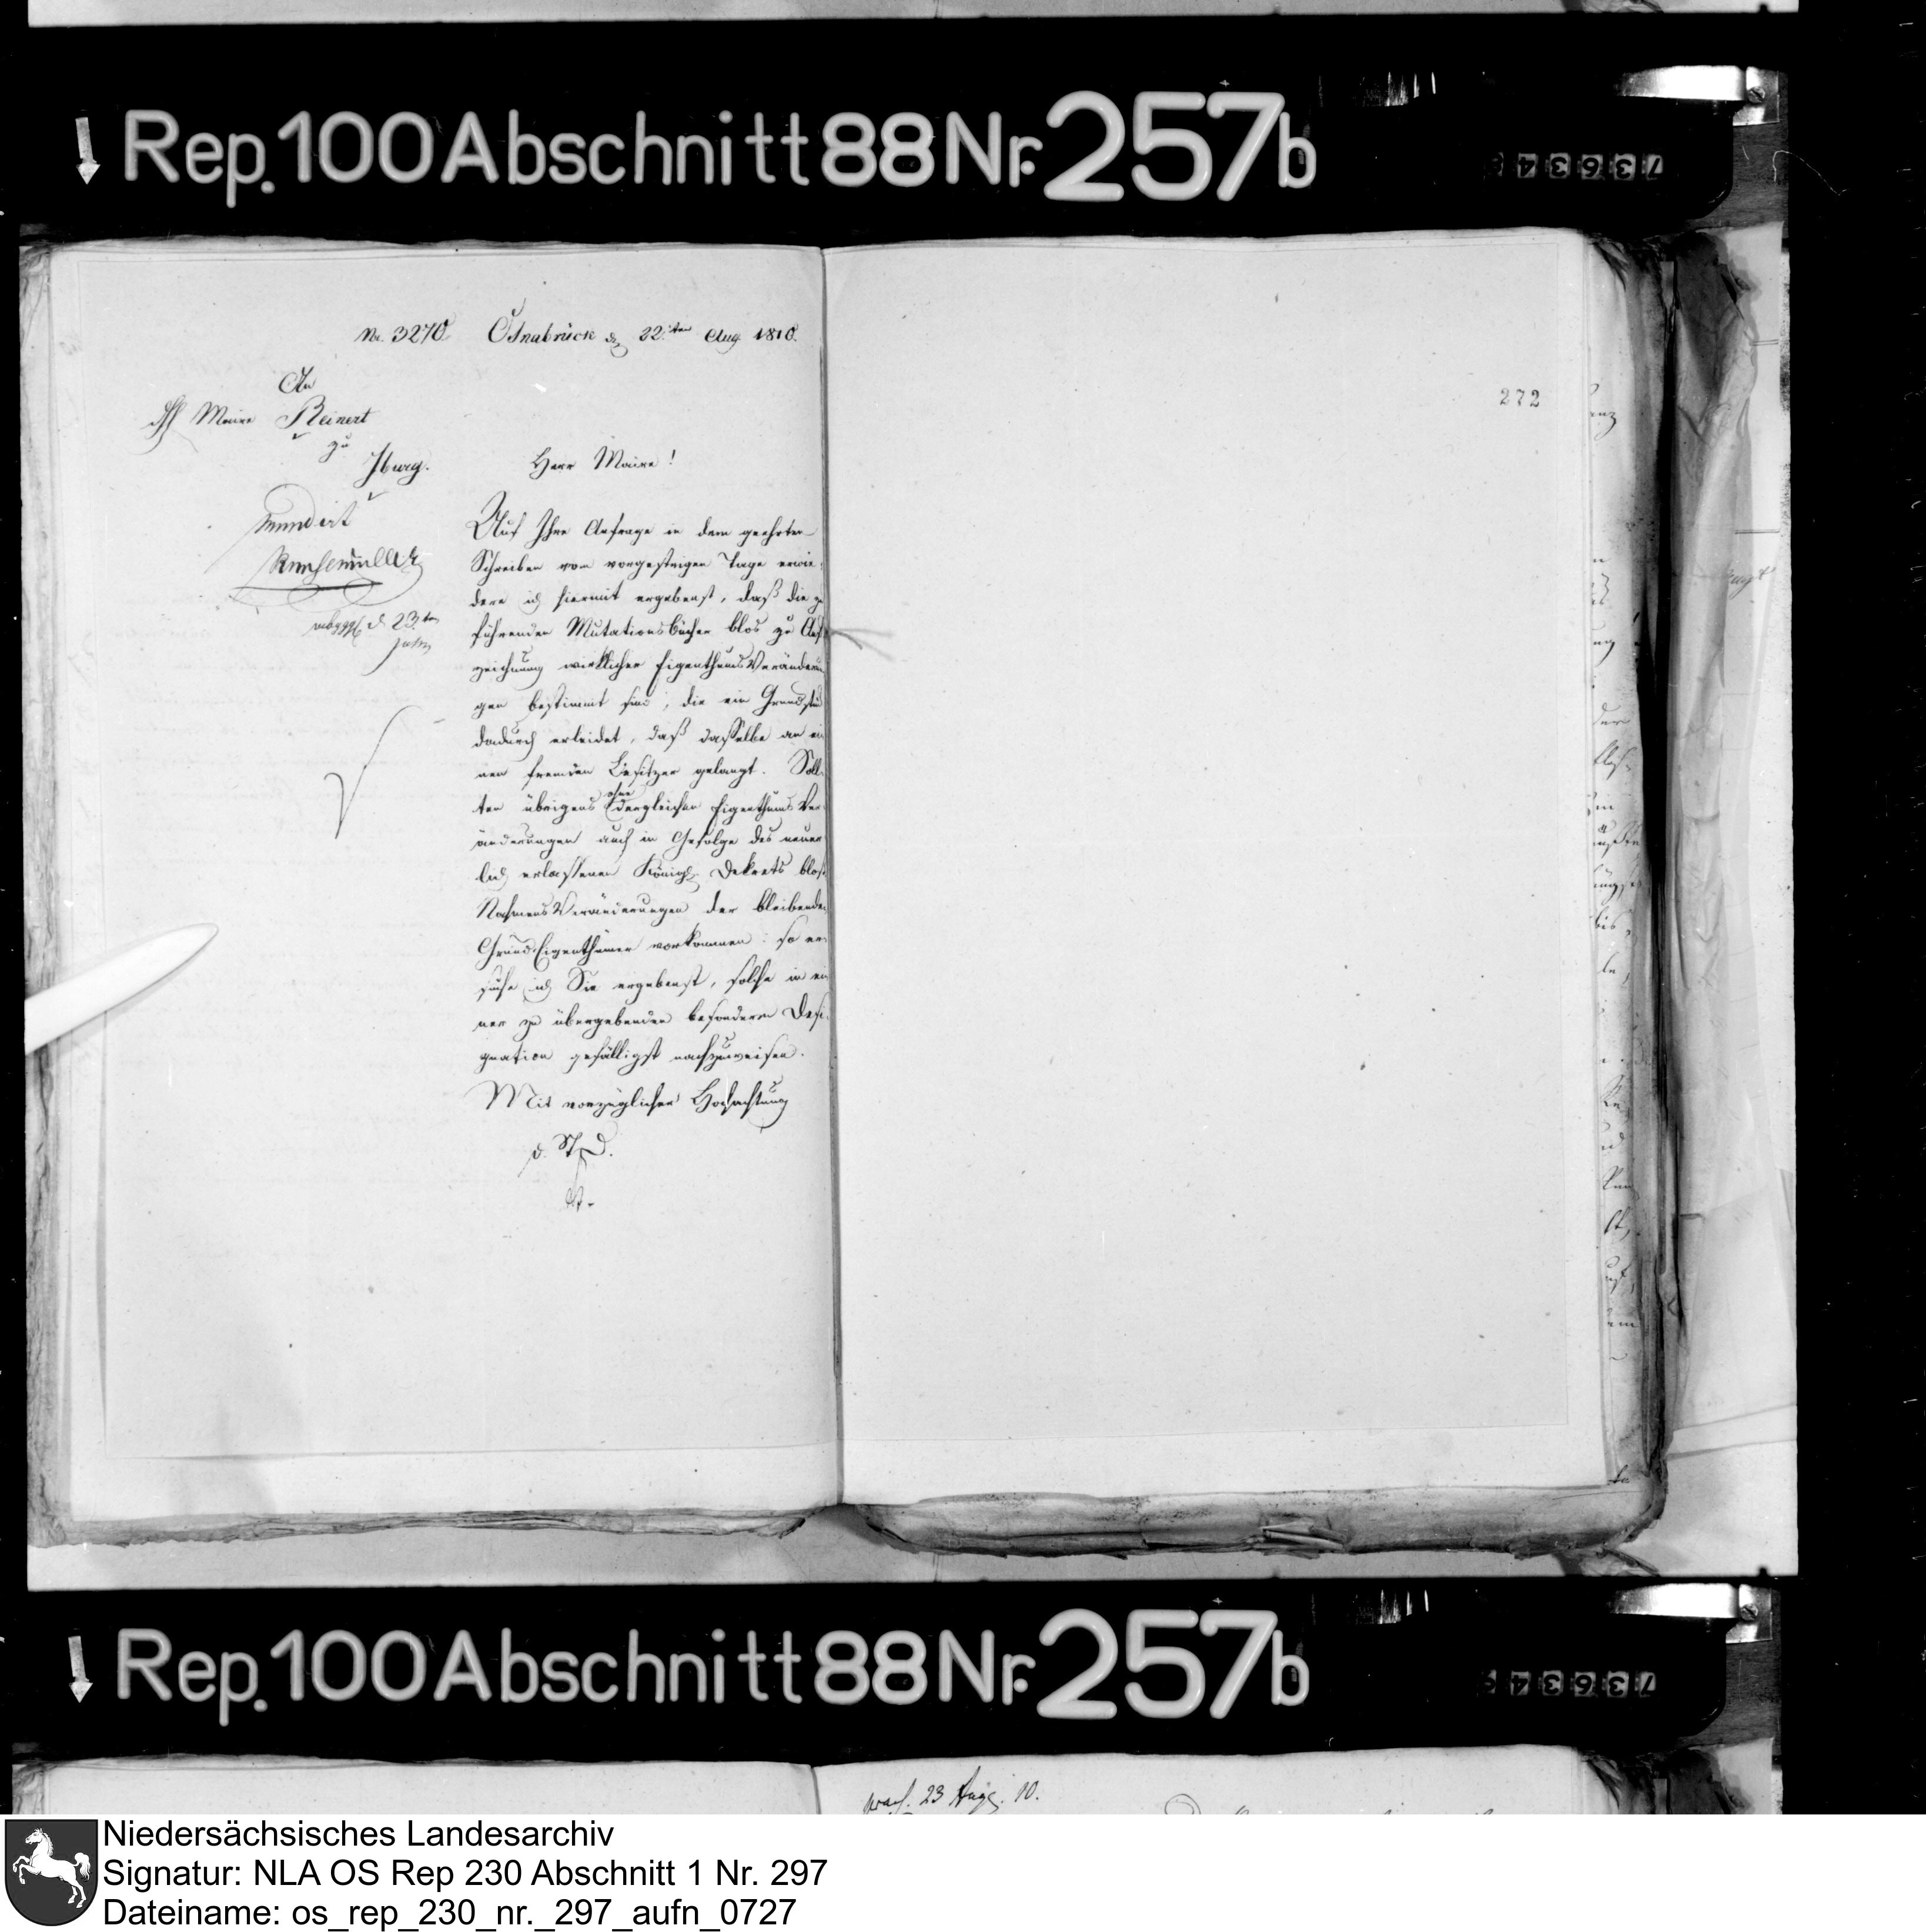 Rep. 100 Abschnitt 88 Nr. 257b
73634
No. 3270. Osnabrück d. 22ten Aug 1810.
An
Maire Reinert
zu
Iburg.
Herr Maire!
mundirt
d. 23ten
Auf Ihre Anfrage in dem geehrten
Schreiben vom vorgestrigen Tage erwie-
dere ich hiermit ergebenst, daß die zu
führenden Mutationsbücher blos zu Auf
zeichnung wirklicher Eigenthums Veränderun
gen bestimmt sind, die ein Grundstück
dadurch erleidet, daß dasselbe an ei
nen fremden Besitzer gelangt. Soll-
ten übrigens ohne dergleichen Eigenthums Ver-
änderungen auch in Gefolge des neuer
lich erlassenen Königl. Dekrets blos
Nahmens Veränderungen der bleibenden
Grund Eigenthümer vorkommen: so er-
suche ich Sie ergebenst, solche in ei
ner zu übergebenden besondern Desi-
gnation gefälligst nachzuweisen.
Mit vorzüglicher Hochachtung
272
Rep. 100 Abschnitt 88 Nr. 257b
73634
praes. 23 Aug. 10.
Niedersächsisches Landesarchiv
Signatur: NLA OS Rep 230 Abschnitt 1 Nr. 297
Dateiname: os_rep_230_nr._297_aufn_0727